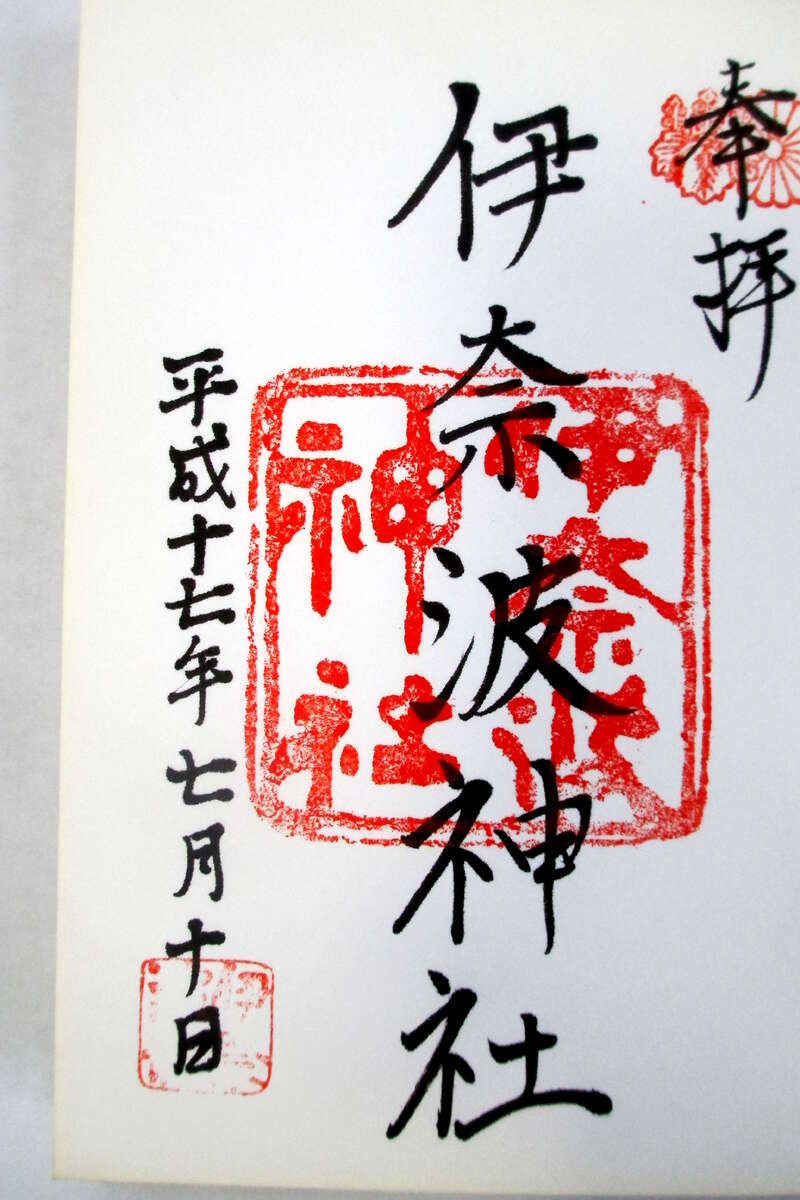 奉拝
伊奈波神社
伊奈波
神社
平成十七年七月十日